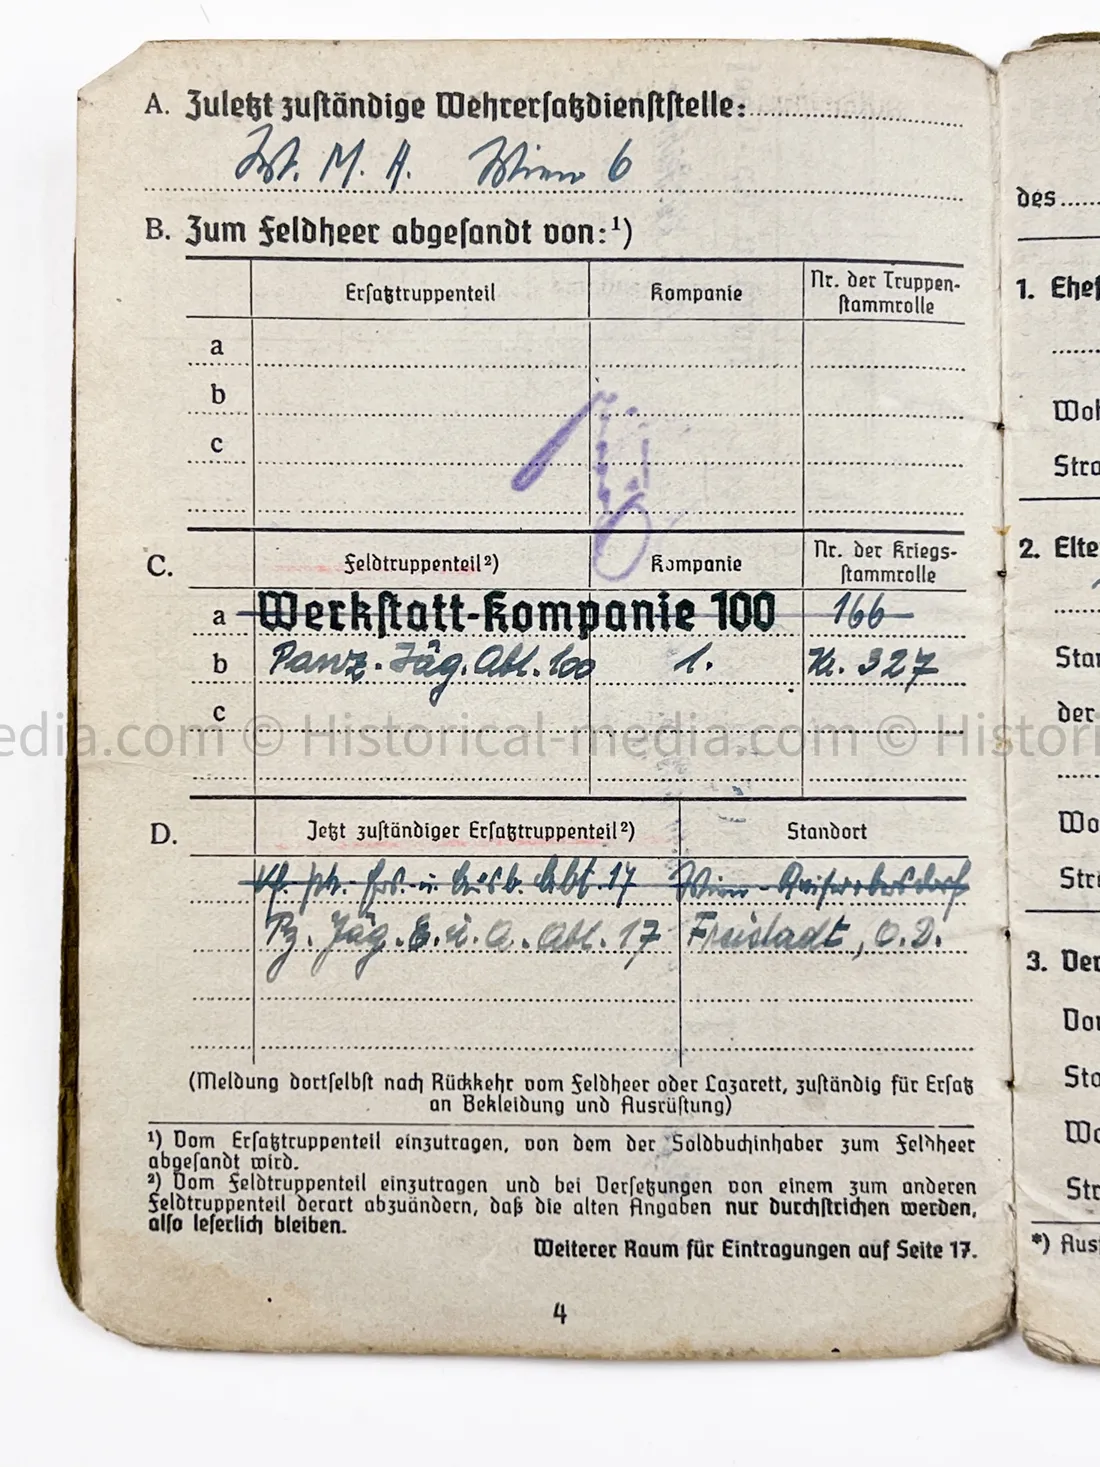 A. Zuletzt zuständige Wehrersatzdienststelle:
W. M. A. Wien 6
B. Zum Feldheer abgesandt von:¹)
Ersatztruppenteil Kompanie Nr. der Truppen-
stammrolle
a
b
c
C. Feldtruppenteil²) Kompanie Nr. der Kriegs-
stammrolle
a Werkstatt-Kompanie 100 166
b Panz. Jäg. Abt. 100 1. K. 327
c
edia.com © Historical-media.com © Histori
D. Jetzt zuständiger Ersatztruppenteil²) Standort
Kf. Pk. Ers. u. Ausb. Abt. 17 Wien - Kaiserebersdorf
Pz. Jäg. E. u. A. Abt. 17 Freistadt, O. D.
(Meldung dortselbst nach Rückkehr vom Feldheer oder Lazarett, zuständig für Ersatz
an Bekleidung und Ausrüstung)
¹) Vom Ersatztruppenteil einzutragen, von dem der Soldbuchinhaber zum Feldheer
abgesandt wird.
²) Vom Feldtruppenteil einzutragen und bei Versetzungen von einem zum anderen
Feldtruppenteil derart abzuändern, daß die alten Angaben nur durchstrichen werden,
also leserlich bleiben.
Weiterer Raum für Eintragungen auf Seite 17.
4
des
1. Ehef
Woh
Stra
2. Elte
Stan
der
Wo
Str
3. Ver
Vor
Sta
Wo
Str
*) Aus